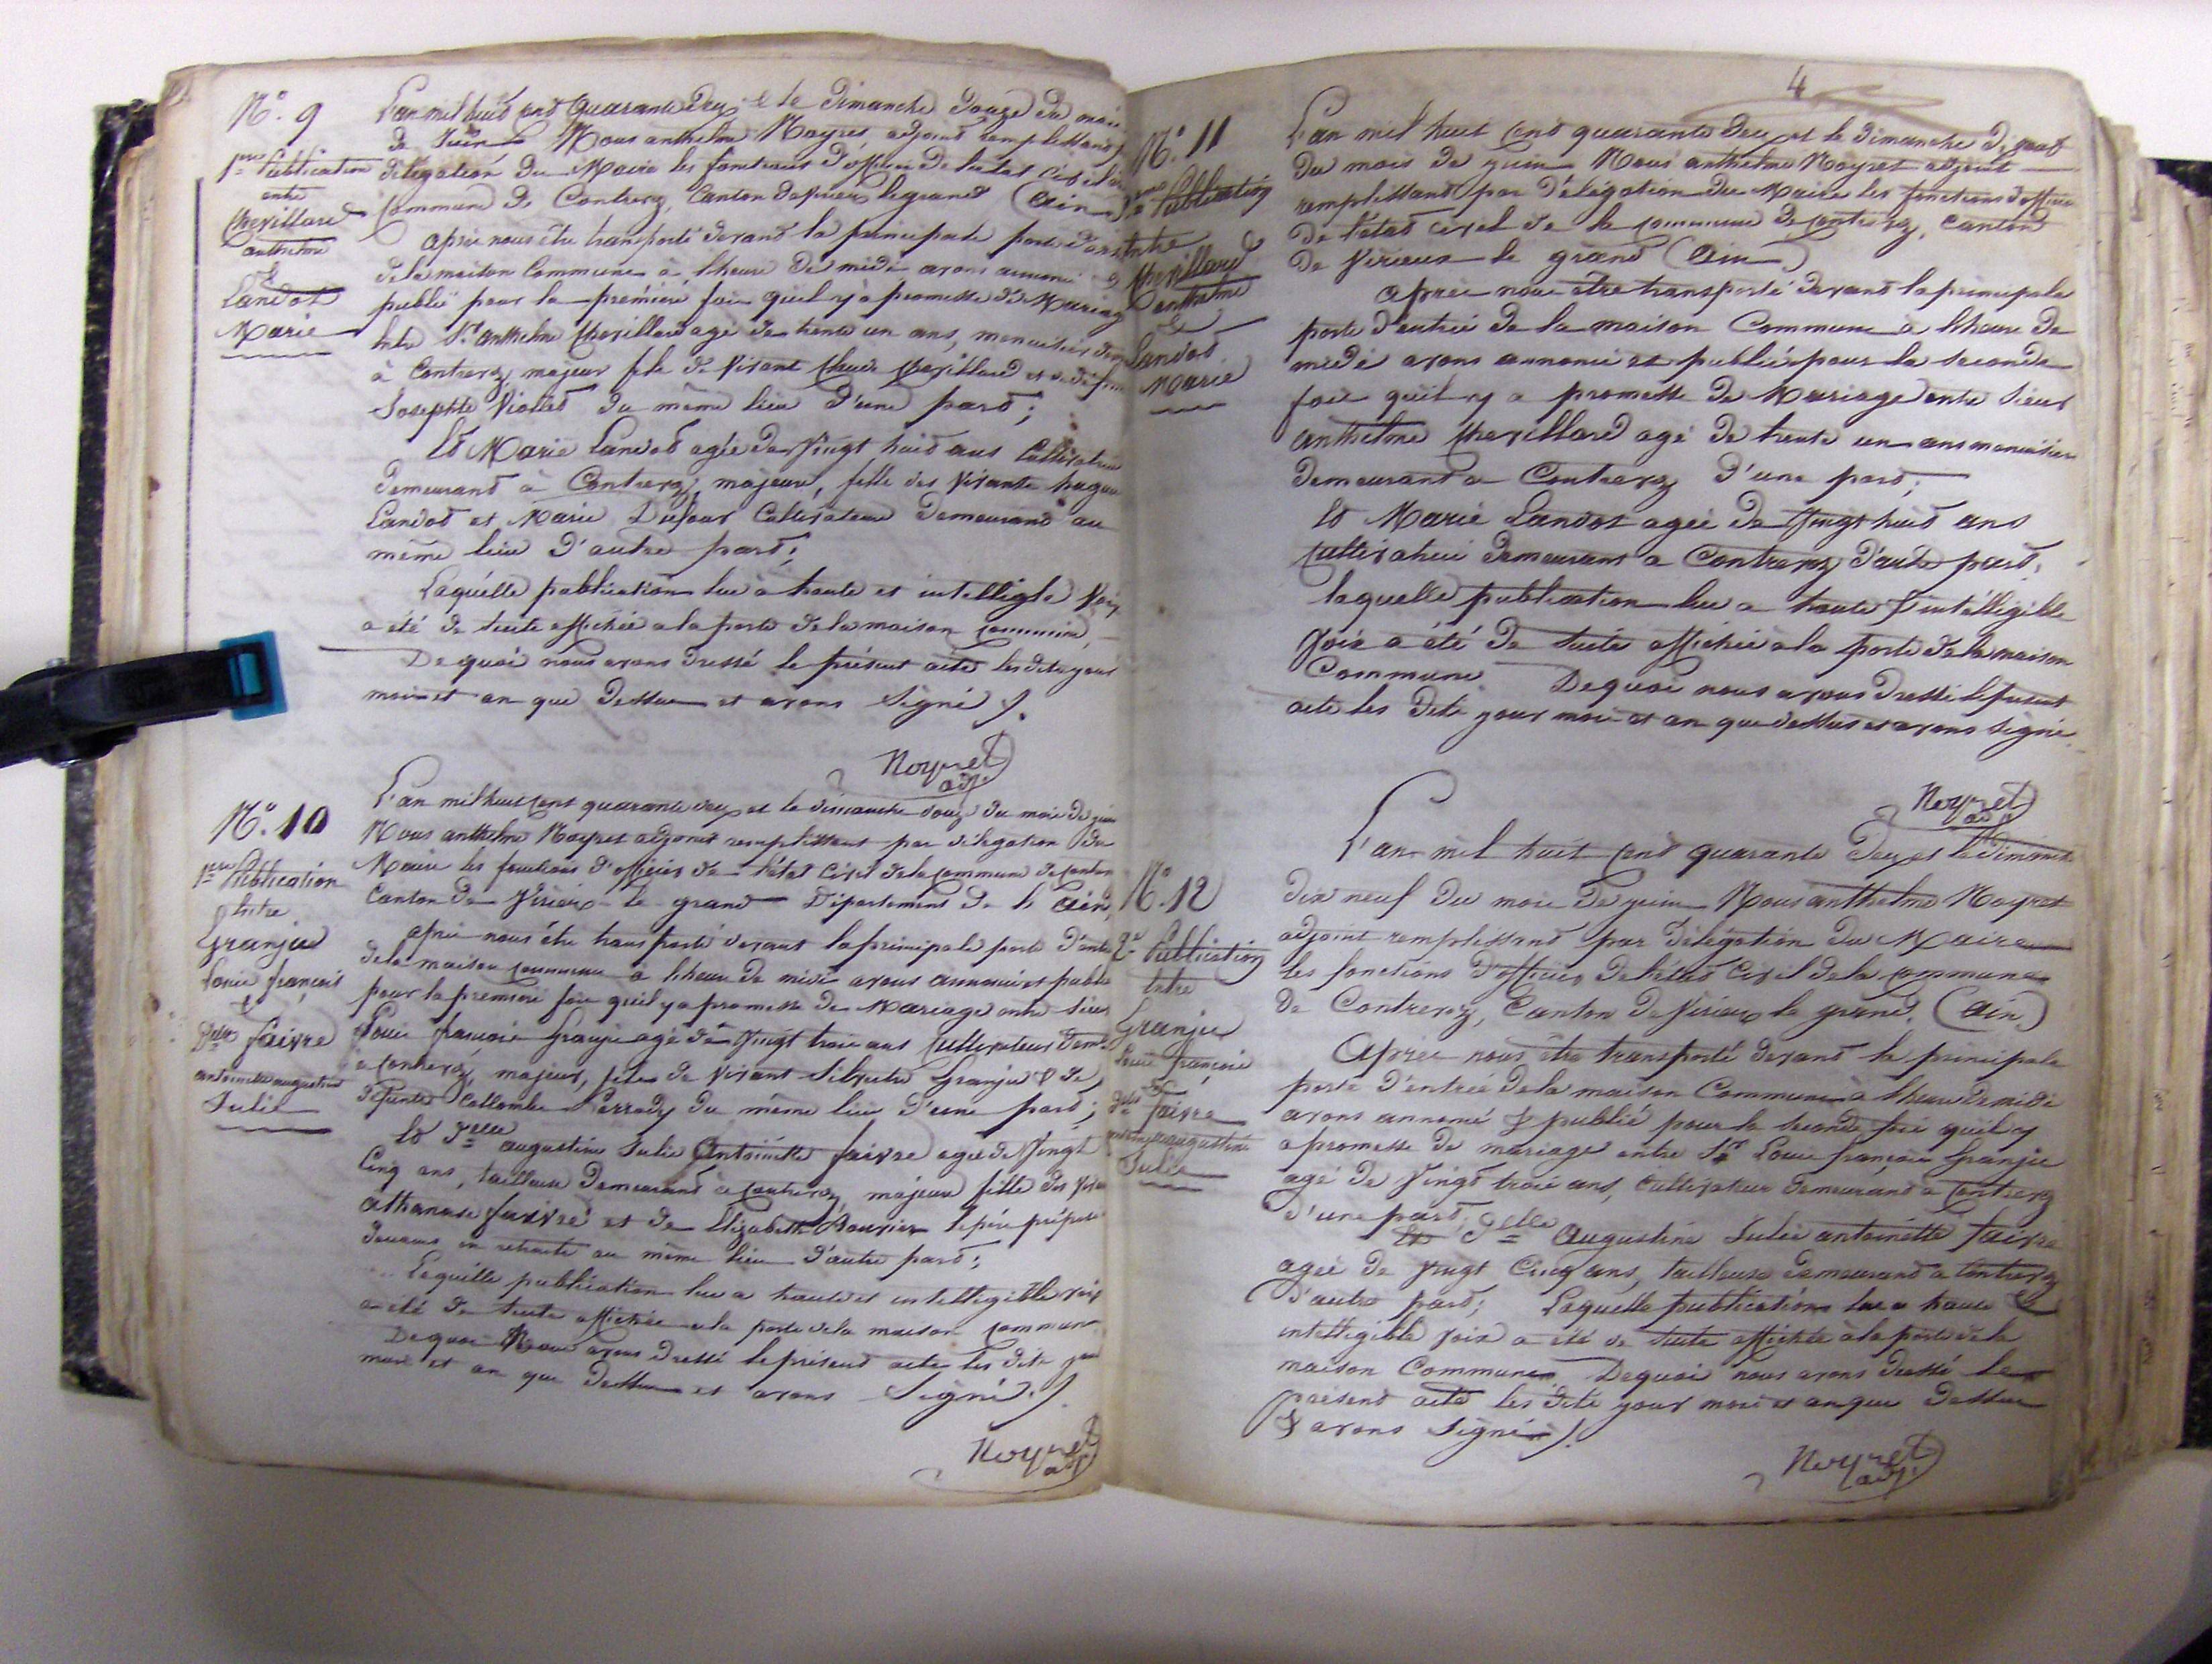 N.° 9
1.re Publication
entre
Chevillard
anthelme
&
Landot
Marie
L'an mil huit cent quarante deux et le dimanche douze du mois
de Juin Nous anthelme Noyret adjoint remplissant
délégation du Maire les fonctions d'officier de l'état civil de
Commune de Contrevoz, Canton de Virieux le grand (Ain)
après nous être transporté devant la principale porte d'
de la maison Commune à l'heure de midi avons annoncé &
publié pour la première fois qu'il y a promesse de Mariage
Entre Sr. anthelme Chevillard agé de trente un ans, menuisier
à Contrevoz, majeur fils de Vivant Chevillard et de
Josephte Viollet du même lieu d'une part;
Et Marie Landot agée de Vingt huit ans Cultivatrice
demeurant à Contrevoz, majeure, fille des Vivants hugue
Landot et Marie Dufour Cultivateur demeurant au
même lieu d'autre part;
Laquelle publication lue à haute et intelligible Voix
a été de suite affichée a la porte de la maison commune
De quoi nous avons dressé le présent acte les dits jour
mois et an que dessus et avons signé ./.
Noyret
adj.
N.° 10
1.re Publication
Entre
Granju
Louis françois
&
Delle faivre
antoinette augustine
Julie
L'an mil huit cent quarante deux et le dimanche douze du mois de juin
Nous anthelme Noyret adjoint remplissant par délégation du
Maire les fonctions d'officier de l'état Civil de la commune de
Canton de Virieux le grand Département de l'Ain,
après nous être transporté devant la principale porte d'entrée
de la maison commune a l'heure de midi avons annoncé et publié
pour la première fois qu'il y a promesse de Mariage entre sieur
Louis françois Granju agé de Vingt trois ans Cultivateur
à contrevoz, majeur, fils de Vivant Silvestre Granju & de
défunte Collombe Perrody du même lieu d'une part;
Et Delle augustine Julie Antoinette faivre agée de Vingt
Cinq ans, tailleuse demeurant à contrevoz majeure fille des
athanase faivre et de Elizabeth Bouvier le père préposé
douanes en retraite au même lieu d'autre part;
Laquelle publication lue a haute et intelligible voix
a été de suite affichée a la porte de la maison commune
De quoi Nous avons dressé le présent acte les dits jour
mois et an que dessus et avons signé ./.
Noyret
adj.
4
N.° 11
Publication
Entre
Chevillard
anthelme
&
Landot
Marie
L'an mil huit cent quarante deux et le dimanche dix neuf
du mois de juin Nous anthelme Noyret adjoint
remplissant par délégation du Maire les fonctions d'officier
de l'état civil de la commune de Contrevoz, Canton
de Virieux le grand (Ain)
après nous être transporté devant la principale
porte d'entrée de la maison Commune à l'heure de
midi avons annoncé et publié pour la seconde
fois qu'il y a promesse de Mariage entre Sieur
anthelme Chevillard agé de trente un ans menuisier
demeurant a Contrevoz d'une part;
Et Marie Landot agée de Vingt huit ans
cultivatrice demeurant a Contrevoz d'autre part.
laquelle publication lue a haute & intelligible
Voix a été de suite affichée a la porte de la maison
Commune De quoi nous avons dressé le présent
acte les dits jour mois et an que dessus et avons signé.
Noyret
adj.
N.° 12
2.e Publication
Entre
Granju
Louis françois
&
Delle faivre
antoinette augustine
Julie
L'an mil huit cent quarante deux et le dimanche
dix neuf du mois de juin Nous anthelme Noyret
adjoint remplissant par délégation du Maire
les fonctions d'officier de l'état civil de la commune
de Contrevoz, Canton de Virieux le grand, (Ain)
Après nous être transporté devant la principale
porte d'entrée de la maison Commune à l'heure de midi
avons annoncé & publié pour la seconde fois qu'il y
a promesse de mariage entre Sr. Louis françois Granju
agé de Vingt trois ans, cultivateur demeurant a Contrevoz
d'une part,
Et Delle Augustine Julie antoinette faivre
agée de Vingt Cinq ans, tailleuse demeurant a Contrevoz
d'autre part; Laquelle publication lue a haute &
intelligible voix a été de suite affichée à la porte de la
maison Commune De quoi nous avons dressé le
présent acte les dits jour mois et an que dessus
& avons signé ./.
Noyret
adj.